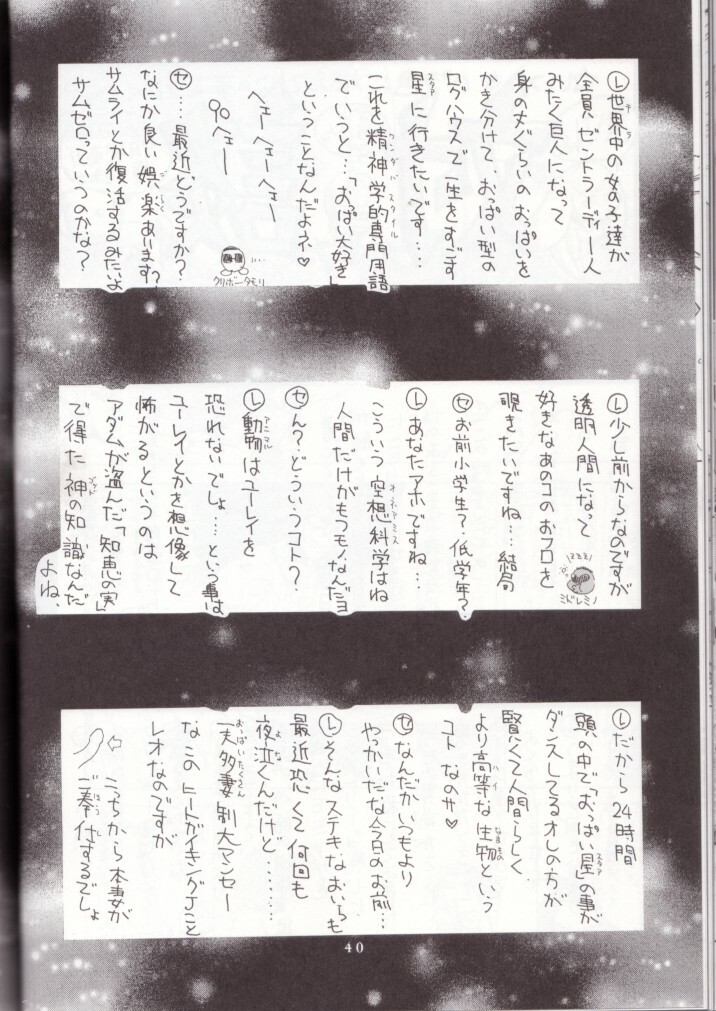 Ⓛ世界中の女の子達が
全員ゼントラーディー人
みたく巨人になって
身のたけぐらいのおっぱいを
かき分けて、おっぱい型の
ログハウスで一生をすごす
星に行きたいです…
これを精神学的専門用語
でいうと…「おっぱい大好き」
ということなんだよネ♡
ヘェーヘェーヘェー
90ヘェー
クリボータモリ
㋝…最近どうですか?
なにか良い娯楽あります?
サムライとか復活するみたいよ
サムゼロっていうのかな?
Ⓛ少し前からなのですが
透明人間になって
好きなあのコのおフロを
覗きたいですね…結局
ミドレミノ
㋝お前小学生?低学年?
Ⓛあなたアホですね…
こういう空想科学はね
人間だけがもつモノなんだヨ
㋝ん?どういうコト?
Ⓛ動物はユーレイを
恐れないでしょ…という事は
ユーレイとかを想像して
怖がるというのは
アダムが盗んだ「知恵の実」
で得た神の知識なんだ
よね、
Ⓛだから24時間
頭の中で「おっぱい星」の事が
ダンスしてるオレの方が
賢くて人間らしく
より高等な生物という
コトなのサ♡
㋝なんだかいつもより
やっかいだな今日のお前…
Ⓛそんなステキなおいらも
最近恐くて何回も
夜泣くんだけど………
一夫多妻制大マンセー
なこのヒートガイキングJこと
レオなのですが
⇦こっちから本妻が
ご奉仕するでしょ
40